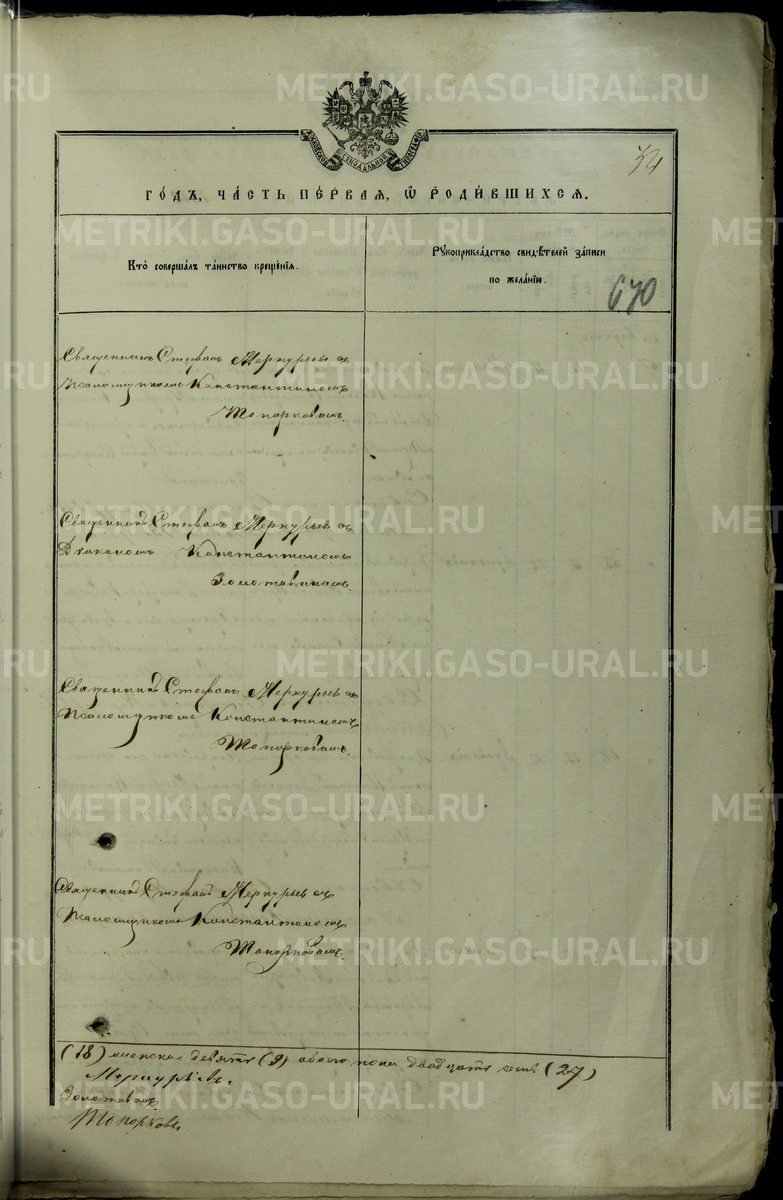 METRIKI.GASO-URAL.RU
34
МОСКОВСКОЙ СѴНОДАЛЬНОЙ ТИПОГРАФІИ
го́дъ, ча́сть пе́рваѧ, ѡ҆ роди́вшихсѧ.
Кто̀ соверша́лъ та́инство креще́нїѧ.
Рꙋкоприкла́дство свидѣ́телей за́писи
по жела́нїю.
670
Священникъ Стефанъ Меркурьевъ съ
Псаломщикомъ Константиномъ
Топорковымъ.
Священникъ Стефанъ Меркурьевъ съ
Діакономъ Константиномъ
Золотавинымъ.
Священникъ Стефанъ Меркурьевъ съ
Псаломщикомъ Константиномъ
Топорковымъ.
Священникъ Стефанъ Меркурьевъ съ
Псаломщикомъ Константиномъ
Топорковымъ.
(18) женска девять (9) обоего пола двадцать семь (27)
Меркурьевъ.
Золотавинъ
Топорковъ.